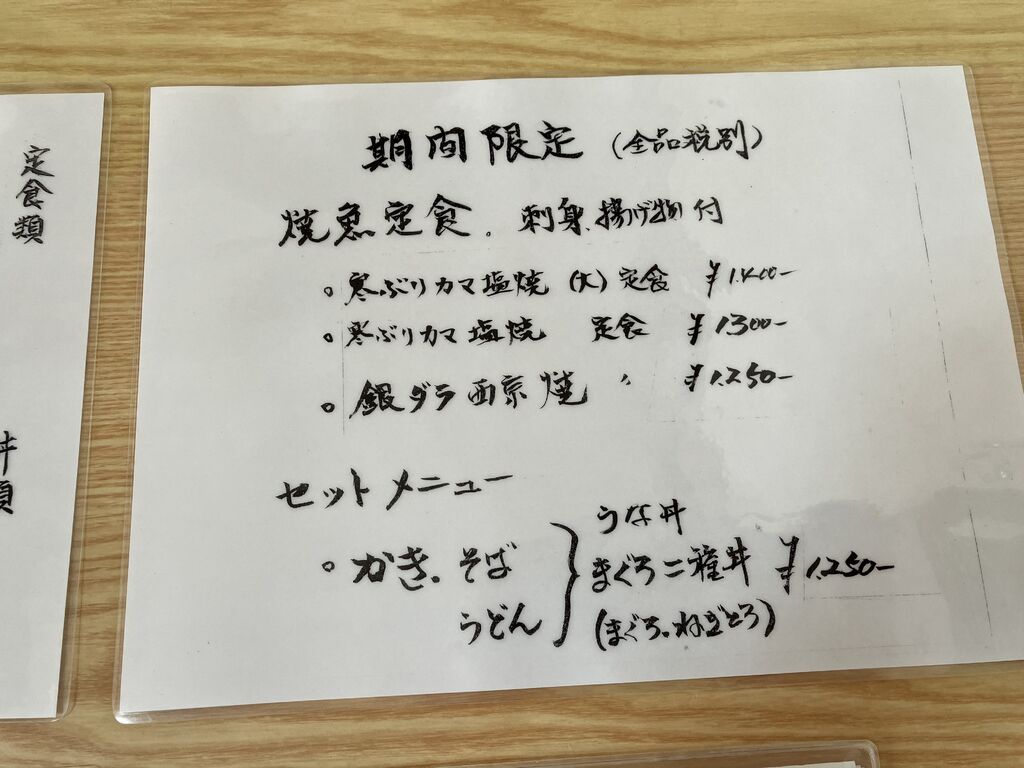 定食類
丼類
期間限定 (全品税別)
焼魚定食. 刺身.揚げ物付
。寒ぶりカマ塩焼 (大)定食 ¥1.400-
。寒ぶりカマ塩焼 定食 ¥1300-
。銀ダラ西京焼 〃 ¥1.250-
セットメニュー
。かき.そば うどん
うな丼
まぐろ二種丼 ¥1.250-
(まぐろ.ねぎとろ)